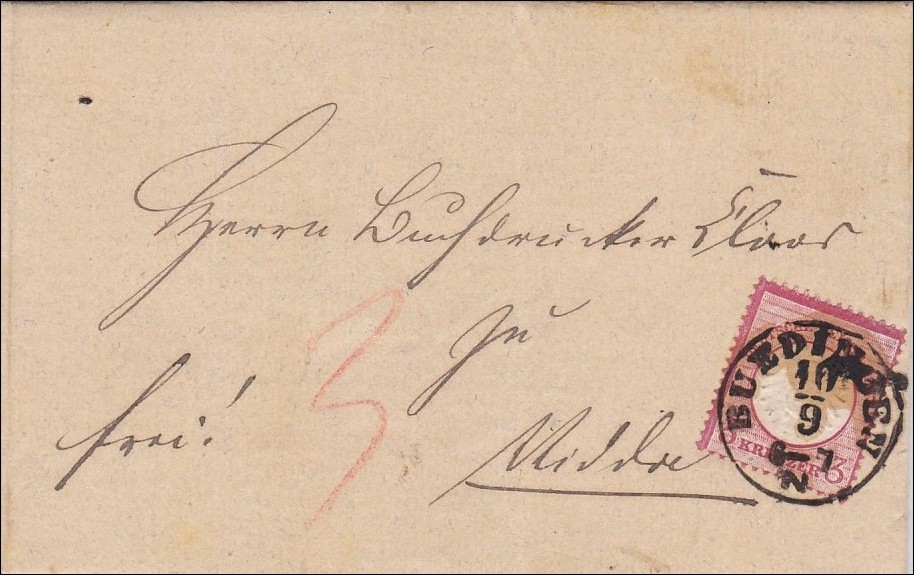 Herrn Buchdrucker Cloos
zu
frei!
3
Nidda
BUEDINGEN
10
9
6-7
N
3 KREUZER 3